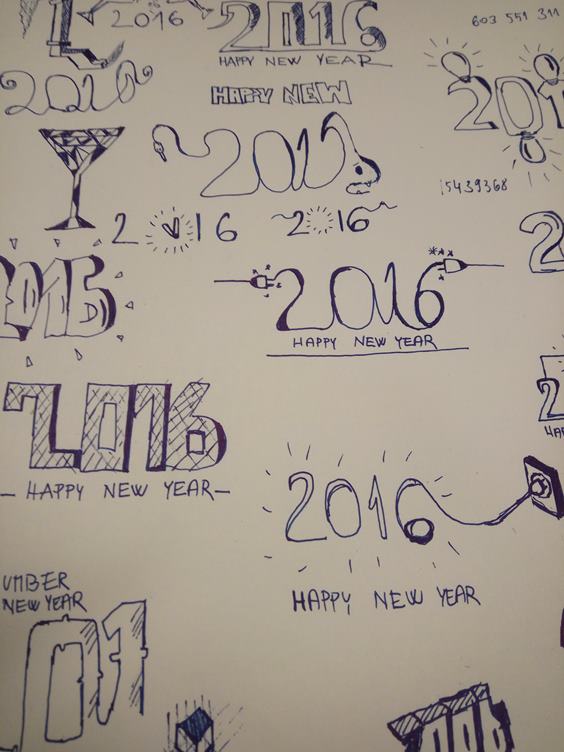 2016
2016
HAPPY NEW YEAR
603 551 311
2016
HAPPY NEW
201
2015
15439368
2 16
2 16
2
2016
2016
HAPPY NEW YEAR
2016
HAPPY NEW YEAR
2
HA
2016
HAPPY NEW YEAR
UMBER
NEW YEAR
01